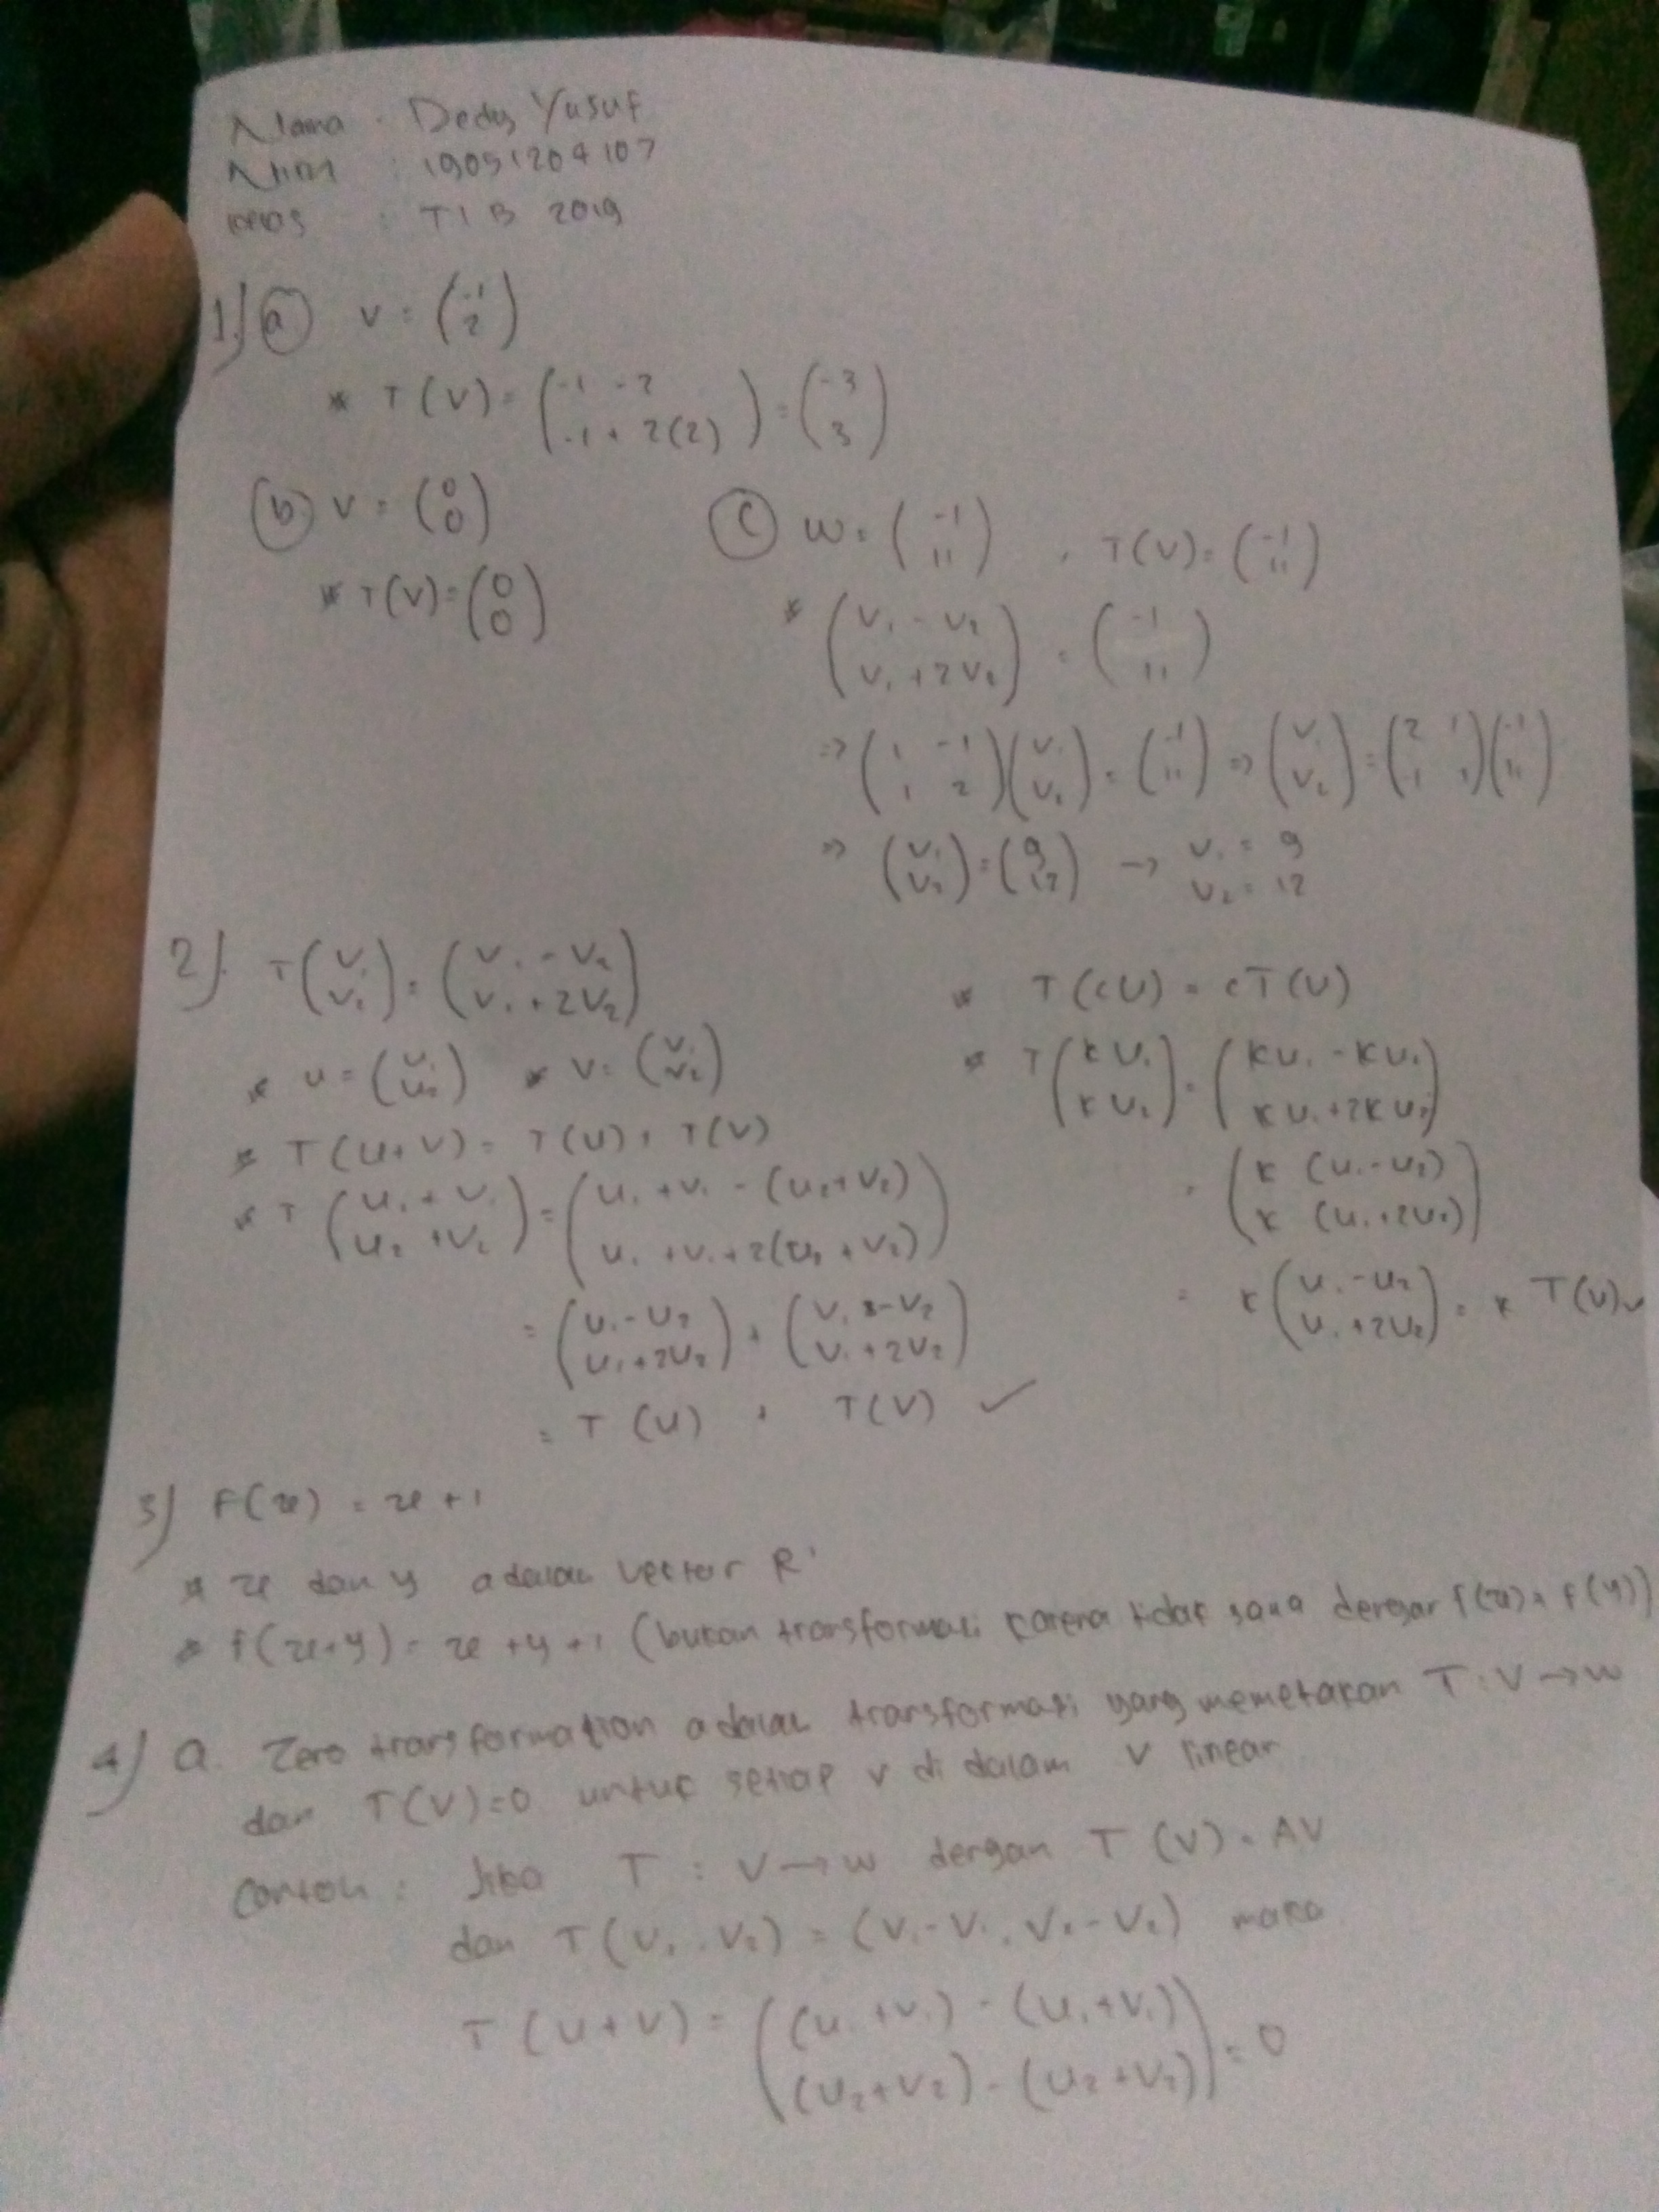 Nama : Dedy Yusuf
Nim : 19051204107
Kelas : TI B 2019
1.) (a) v = (-1 2)
* T(v) = (-1 -2 -1 + 2(2)) = (-3 3)
(b) v = (0 0)
* T(v) = (0 0)
(c) w = (-1 11) , T(v) = (-1 11)
* (v₁ - v₂ v₁ + 2v₂) = (-1 11)
=> (1 -1 1 2)(v₁ v₂) = (-1 11) => (v₁ v₂) = (2 1 1 1)(-1 11)
=> (v₁ v₂) = (9 12) → v₁ = 9 v₂ = 12
2). T(v₁ v₂) = (v₁ - v₂ v₁ + 2v₂)
* u = (u₁ u₂) * v = (v₁ v₂)
* T(u+v) = T(u) + T(v)
* T(u₁ + v₁ u₂ + v₂) = (u₁ + v₁ - (u₂+v₂) u₁ + v₁ + 2(u₂ + v₂))
= (u₁ - u₂ u₁ + 2u₂) + (v₁ - v₂ v₁ + 2v₂)
= T(u) + T(v) ✓
* T(cu) = cT(u)
* T(ku₁ ku₂) = (ku₁ - ku₂ ku₁ + 2ku₂)
= (k (u₁ - u₂) k (u₁ + 2u₂))
= k(u₁ - u₂ u₁ + 2u₂) = k T(u) ✓
3) F(x) = x + 1
* x dan y adalah vector R¹
* f(x+y) = x + y + 1 (bukan transformasi karena tidak sama dengan f(x) + f(y))
4) a. Zero transformation adalah transformasi yang memetakan T : V → W
dan T(v)=0 untuk setiap v di dalam V linear
Contoh : Jika T : V → W dengan T(v) = Av
dan T(v₁, v₂) = (v₁ - v₁, v₂ - v₂) maka
T(u+v) = ((u₁ + v₁) - (u₁ + v₁) (u₂ + v₂) - (u₂ + v₂)) = 0